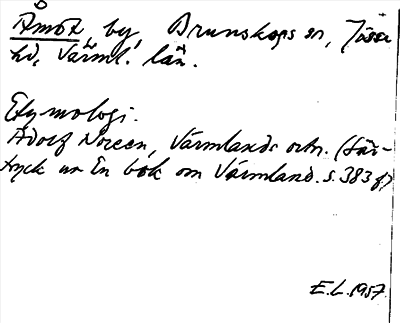 Åmot, by, Brunskogs sn, Jösse
hd, Värml. län.
Etymologi.
Adolf Noreen, Värmlands ortn. (Sär-
tryck ur En bok om Värmland. s. 383 f)
E.L. 1957.